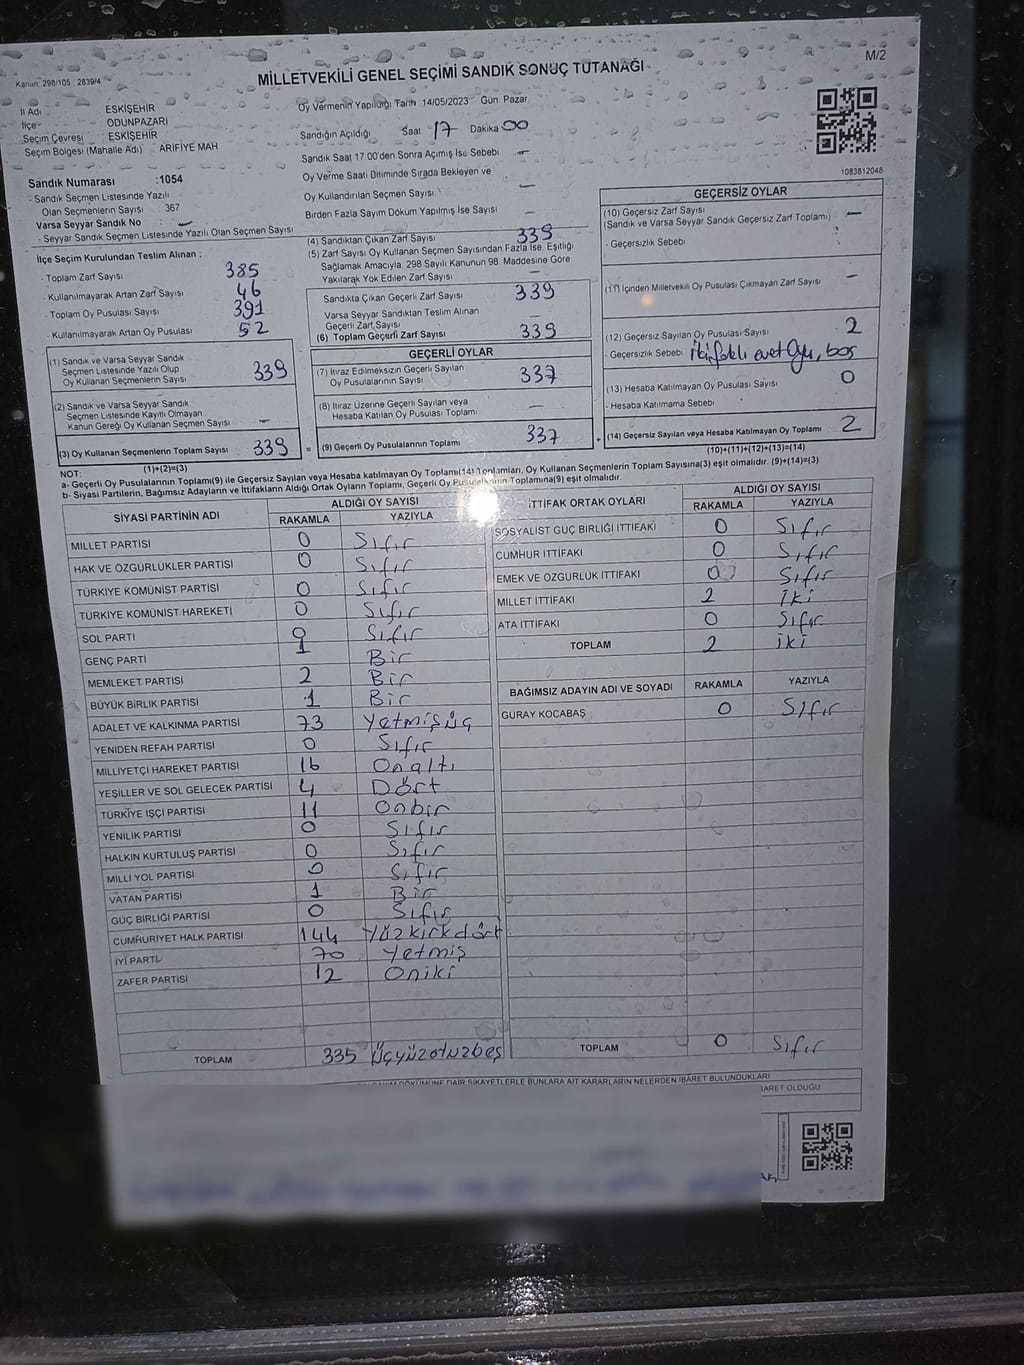 Kanun: 298/105 2839/4
M/2
MİLLETVEKİLİ GENEL SEÇİMİ SANDIK SONUÇ TUTANAĞI
İl Adı ESKİŞEHİR
İlçe ODUNPAZARI
Seçim Çevresi ESKİŞEHİR
Seçim Bölgesi (Mahalle Adı) ARİFİYE MAH
Oy Vermenin Yapıldığı Tarih 14/05/2023 Gün Pazar
Sandığın Açıldığı Saat 17 Dakika 00
Sandık Saat 17 00'den Sonra Açılmış İse Sebebi —
Oy Verme Saati Bitiminde Sırada Bekleyen ve
Oy Kullandırılan Seçmen Sayısı —
Birden Fazla Sayım Döküm Yapılmış İse Sayısı —
1083812048
Sandık Numarası :1054
- Sandık Seçmen Listesinde Yazılı
Olan Seçmenlerin Sayısı 367
Varsa Seyyar Sandık No —
- Seyyar Sandık Seçmen Listesinde Yazılı Olan Seçmen Sayısı
İlçe Seçim Kurulundan Teslim Alınan :
- Toplam Zarf Sayısı 385
- Kullanılmayarak Artan Zarf Sayısı 46
- Toplam Oy Pusulası Sayısı 391
- Kullanılmayarak Artan Oy Pusulası 52
(1) Sandık ve Varsa Seyyar Sandık
Seçmen Listesinde Yazılı Olup
Oy Kullanan Seçmenlerin Sayısı 339
(2) Sandık ve Varsa Seyyar Sandık
Seçmen Listesinde Kayıtlı Olmayan
Kanun Gereği Oy Kullanan Seçmen Sayısı —
(3) Oy Kullanan Seçmenlerin Toplam Sayısı 339
(1)+(2)=(3)
(4) Sandıktan Çıkan Zarf Sayısı 339
(5) Zarf Sayısı Oy Kullanan Seçmen Sayısından Fazla İse, Eşitliği
Sağlamak Amacıyla, 298 Sayılı Kanunun 98. Maddesine Göre
Yakılarak Yok Edilen Zarf Sayısı —
Sandıkta Çıkan Geçerli Zarf Sayısı 339
Varsa Seyyar Sandıktan Teslim Alınan
Geçerli Zarf Sayısı —
(6) Toplam Geçerli Zarf Sayısı 339
GEÇERLİ OYLAR
(7) İtiraz Edilmeksizin Geçerli Sayılan
Oy Pusulalarının Sayısı 337
(8) İtiraz Üzerine Geçerli Sayılan veya
Hesaba Katılan Oy Pusulası Toplamı —
= (9) Geçerli Oy Pusulalarının Toplamı 337
GEÇERSİZ OYLAR
(10) Geçersiz Zarf Sayısı —
(Sandık ve Varsa Seyyar Sandık Geçersiz Zarf Toplamı)
- Geçersizlik Sebebi
(11) İçinden Milletvekili Oy Pusulası Çıkmayan Zarf Sayısı —
(12) Geçersiz Sayılan Oy Pusulası Sayısı 2
- Geçersizlik Sebebi boş
(13) Hesaba Katılmayan Oy Pusulası Sayısı 0
- Hesaba Katılmama Sebebi
+ (14) Geçersiz Sayılan veya Hesaba Katılmayan Oy Toplamı 2
(10)+(11)+(12)+(13)=(14)
NOT:
a- Geçerli Oy Pusulalarının Toplamı(9) ile Geçersiz Sayılan veya Hesaba katılmayan Oy Toplamı(14) Toplamları, Oy Kullanan Seçmenlerin Toplam Sayısına(3) eşit olmalıdır. (9)+(14)=(3)
b- Siyasi Partilerin, Bağımsız Adayların ve İttifakların Aldığı Ortak Oyların Toplamı, Geçerli Oy Pusulalarının Toplamına(9) eşit olmalıdır.
SİYASİ PARTİNİN ADI ALDIĞI OY SAYISI
RAKAMLA YAZIYLA
MİLLET PARTİSİ 0 Sıfır
HAK VE ÖZGÜRLÜKLER PARTİSİ 0 Sıfır
TÜRKİYE KOMÜNİST PARTİSİ 0 Sıfır
TÜRKİYE KOMÜNİST HAREKETİ 0 Sıfır
SOL PARTİ 0 Sıfır
GENÇ PARTİ 1 Bir
MEMLEKET PARTİSİ 2 Bir
BÜYÜK BİRLİK PARTİSİ 1 Bir
ADALET VE KALKINMA PARTİSİ 73 Yetmişüç
YENİDEN REFAH PARTİSİ 0 Sıfır
MİLLİYETÇİ HAREKET PARTİSİ 16 Onaltı
YEŞİLLER VE SOL GELECEK PARTİSİ 4 Dört
TÜRKİYE İŞÇİ PARTİSİ 11 Onbir
YENİLİK PARTİSİ 0 Sıfır
HALKIN KURTULUŞ PARTİSİ 0 Sıfır
MİLLİ YOL PARTİSİ 0 Sıfır
VATAN PARTİSİ 1 Bir
GÜÇ BİRLİĞİ PARTİSİ 0 Sıfır
CUMHURİYET HALK PARTİSİ 144 Yüzkırkdört
İYİ PARTİ 70 Yetmiş
ZAFER PARTİSİ 12 Oniki
TOPLAM 335 Üçyüzotuzbeş
İTTİFAK ORTAK OYLARI ALDIĞI OY SAYISI
RAKAMLA YAZIYLA
SOSYALİST GÜÇ BİRLİĞİ İTTİFAKI 0 Sıfır
CUMHUR İTTİFAKI 0 Sıfır
EMEK VE ÖZGÜRLÜK İTTİFAKI 0 Sıfır
MİLLET İTTİFAKI 2 İki
ATA İTTİFAKI 0 Sıfır
TOPLAM 2 iki
BAĞIMSIZ ADAYIN ADI VE SOYADI RAKAMLA YAZIYLA
GÜRAY KOCABAŞ 0 Sıfır
TOPLAM 0 Sıfır
DÖKÜMÜNE DAİR ŞİKAYETLERLE BUNLARA AİT KARARLARIN NELERDEN İBARET BULUNDUKLARI
İBARET OLDUĞU